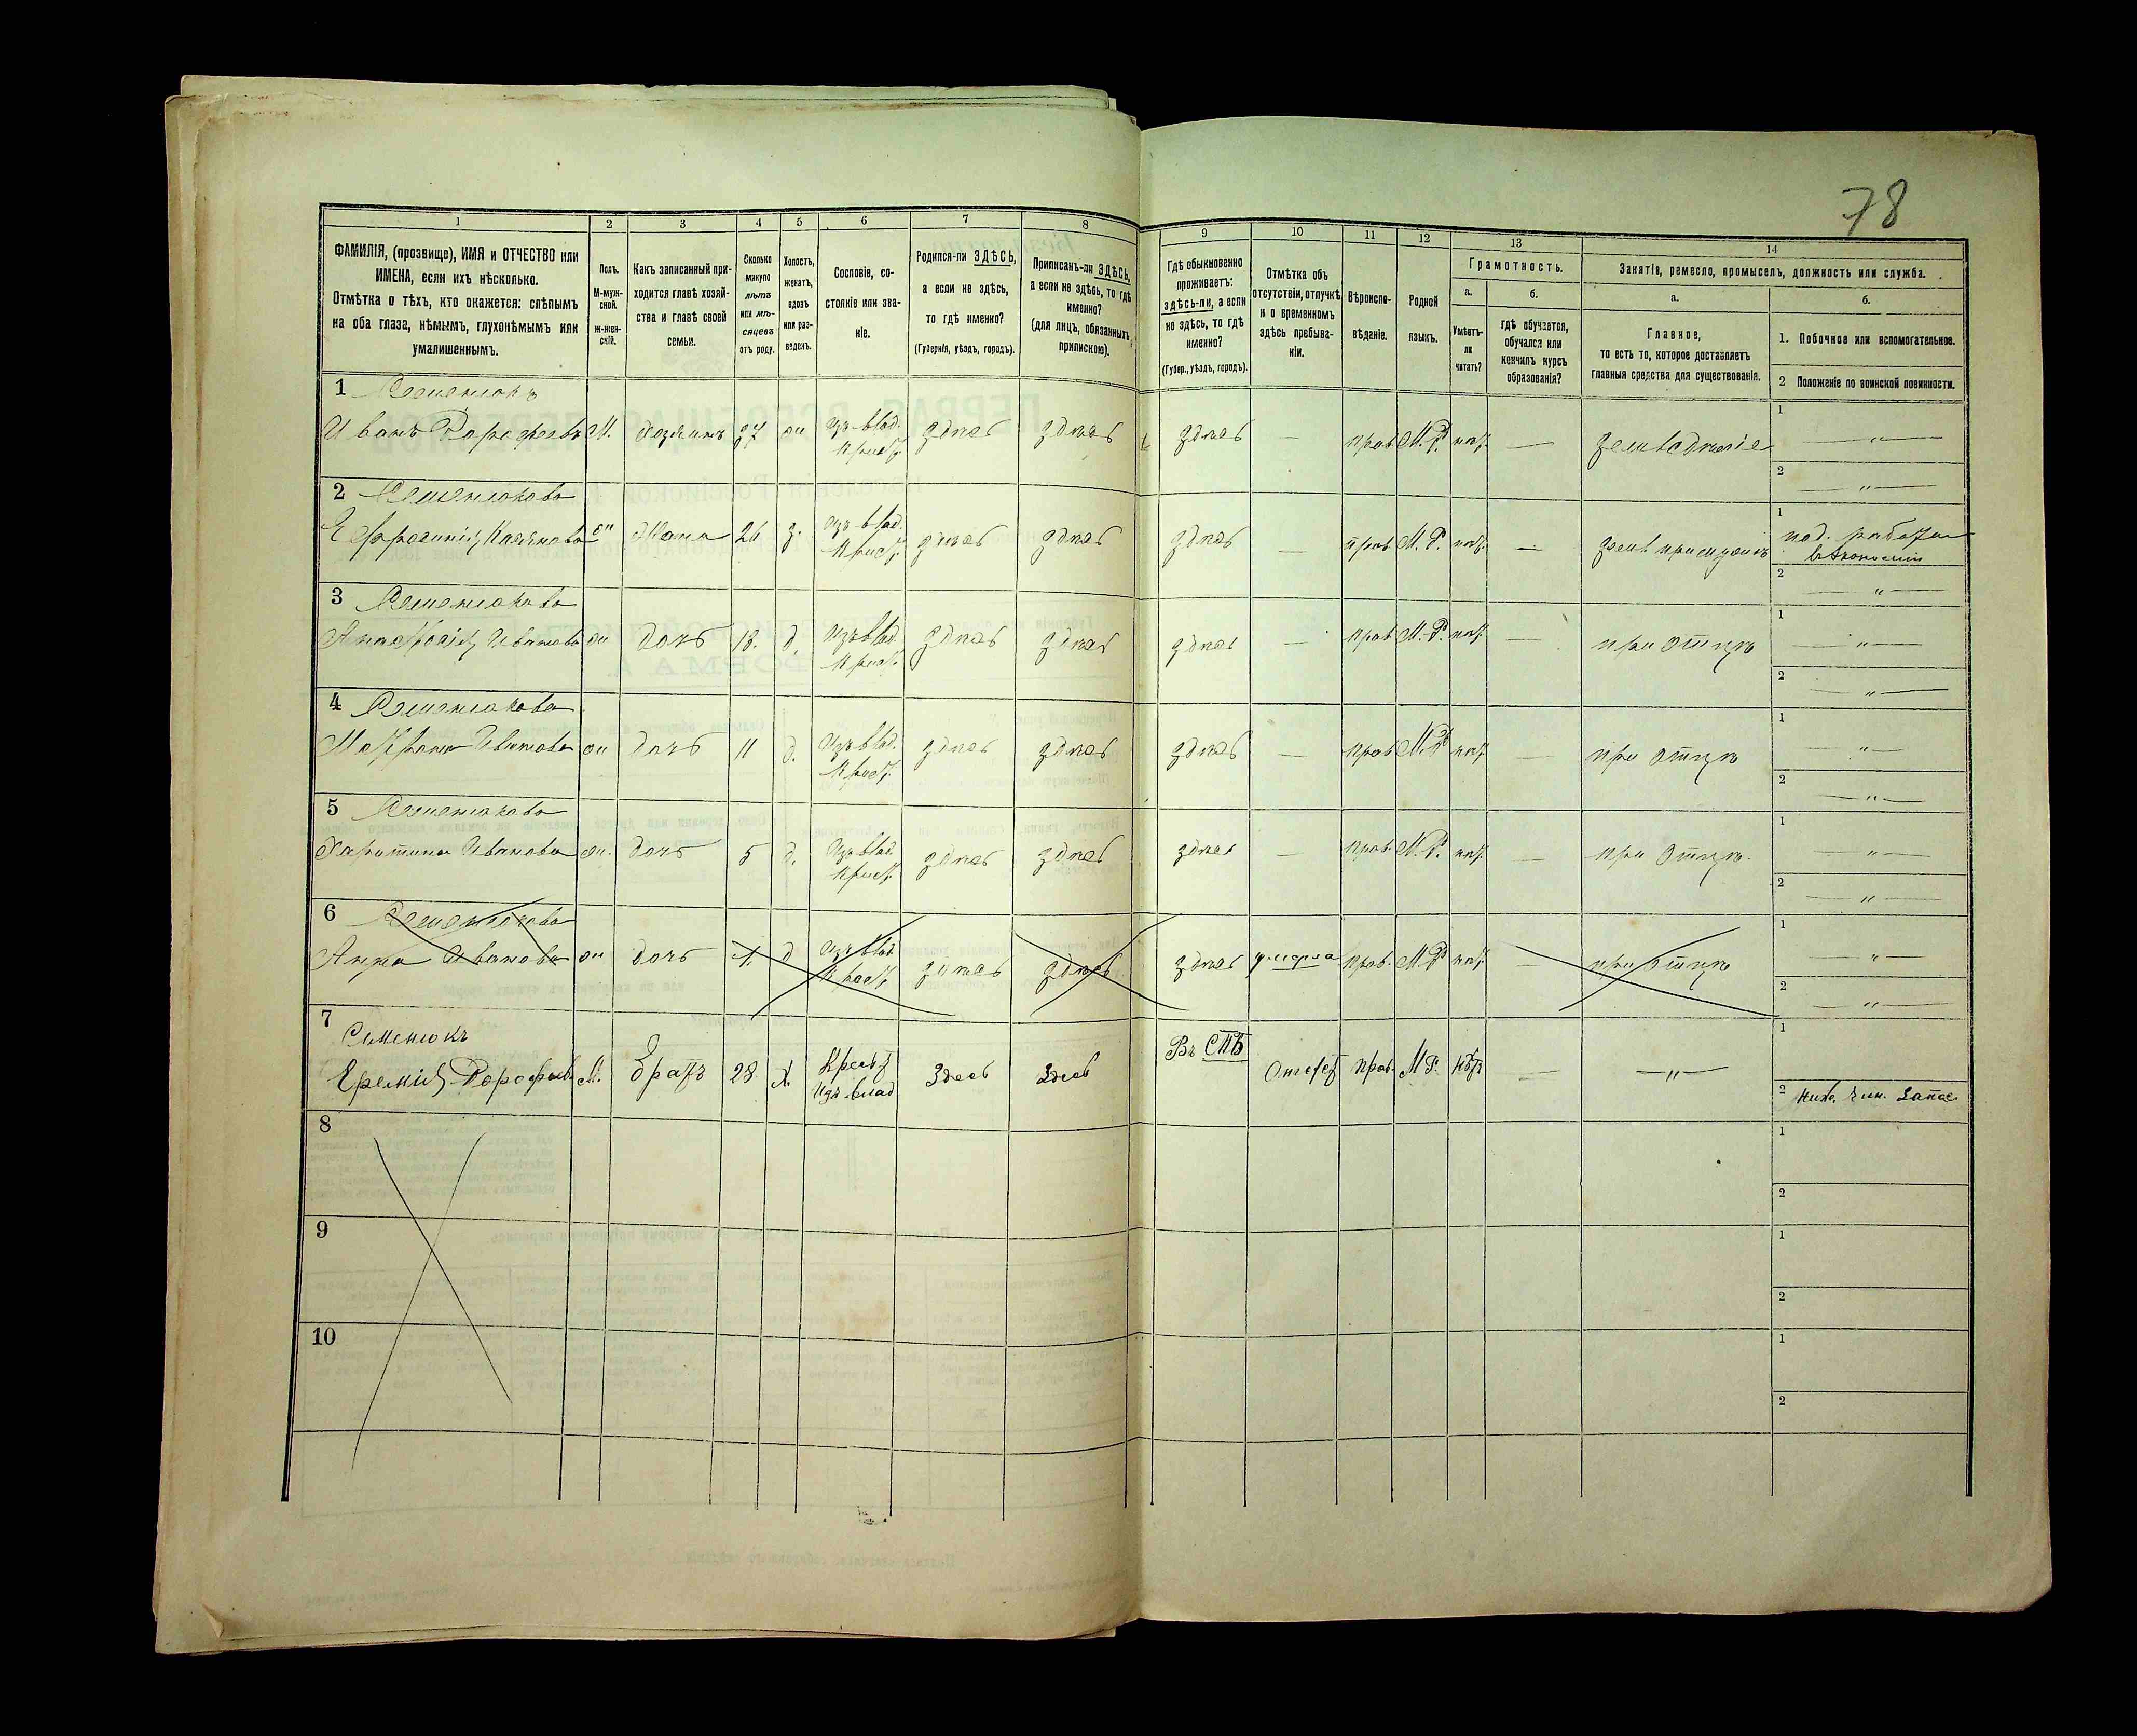 78
1
2
3
4
5
6
7
8
9
10
11
12
13
14
ФАМИЛІЯ, (прозвище), ИМЯ и ОТЧЕСТВО или
ИМЕНА, если ихъ нѣсколько.
Отмѣтка о тѣхъ, кто окажется: слѣпымъ
на оба глаза, нѣмымъ, глухонѣмымъ или
умалишеннымъ.
Полъ.
М-муж-
ской.
ж-жен-
скій.
Какъ записанный при-
ходится главѣ хозяй-
ства и главѣ своей
семьи.
Сколько
минуло
лѣтъ
или мѣ-
сяцевъ
отъ роду.
Холостъ,
женатъ,
вдовъ
или раз-
веденъ.
Сословіе, со-
стояніе или зва-
ніе.
Родился-ли ЗДѢСЬ,
а если не здѣсь,
то гдѣ именно?
(Губернія, уѣздъ, городъ).
Приписанъ-ли ЗДѢСЬ,
а если не здѣсь, то гдѣ
именно?
(для лицъ, обязанныхъ
припискою).
Гдѣ обыкновенно
проживаетъ:
здѣсь-ли, а если
не здѣсь, то гдѣ
именно?
(Губер., уѣздъ, городъ).
Отмѣтка объ
отсутствіи, отлучкѣ
и о временномъ
здѣсь пребыва-
ніи.
Вѣроиспо-
вѣданіе.
Родной
языкъ.
Грамотность.
а.
Умѣетъ-
ли
читать?
б.
гдѣ обучается,
обучался или
кончилъ курсъ
образованія?
Занятіе, ремесло, промыселъ, должность или служба.
а.
Главное,
то есть то, которое доставляетъ
главныя средства для существованія.
б.
1. Побочное или вспомогательное.
2 Положеніе по воинской повинности.
1 Семенюкъ
Иванъ Дорофеевъ М. Хозяинъ 37 ж Изъ влад. крест. здѣсь здѣсь здѣсь — прав. М.Р. нѣт. — земледѣліе 1 — " —
2 — " —
2 Семенюкова
Ефросинія жена 26 з. Изъ влад. крест. здѣсь здѣсь здѣсь — прав. М.Р. нѣт. — при мужѣ 1 под. работы
2 — " —
3 Семенюкова
Анастасія Иванова ж дочь 13. д. Изъ влад. крест. здѣсь здѣсь здѣсь — прав. М.Р. нѣт. — при отцѣ 1 — " —
2 — " —
4 Семенюкова
Матрона Иванова ж дочь 11 д. Изъ влад. крест. здѣсь здѣсь здѣсь — прав. М.Р. нѣт. — при отцѣ 1 — " —
2 — " —
5 Семенюкова
Харитина Иванова ж. дочь 5 д. Изъ влад. крест. здѣсь здѣсь здѣсь — прав. М.Р. нѣт. — при отцѣ. 1 — " —
2 — " —
6 Семенюкова
Анна Иванова ж дочь 1. д Изъ влад. крест. здѣсь здѣсь здѣсь умерла прав. М.Р. нѣт. — при отцѣ 1 — " —
2 — " —
7 Семенюкъ
Еремій Дорофеев. М. братъ 28 х. Крест. Изъ влад. Здесь Здесь Въ СПБ прав. М.Р. нѣтъ — — " — 1
2 Ниж. чин. запас.
8 1
2
9 1
2
10 1
2